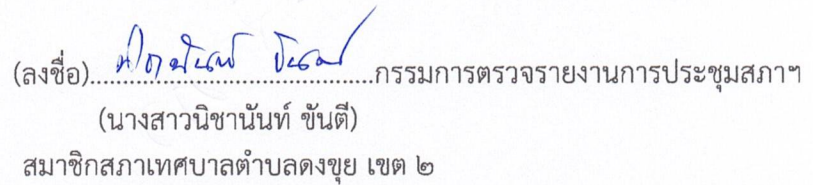 (ลงชื่อ)......................................กรรมการตรวจรายงานการประชุมสภาฯ
(นางสาวนิชานันท์ ขันตี)
สมาชิกสภาเทศบาลตำบลดงขุย เขต ๒